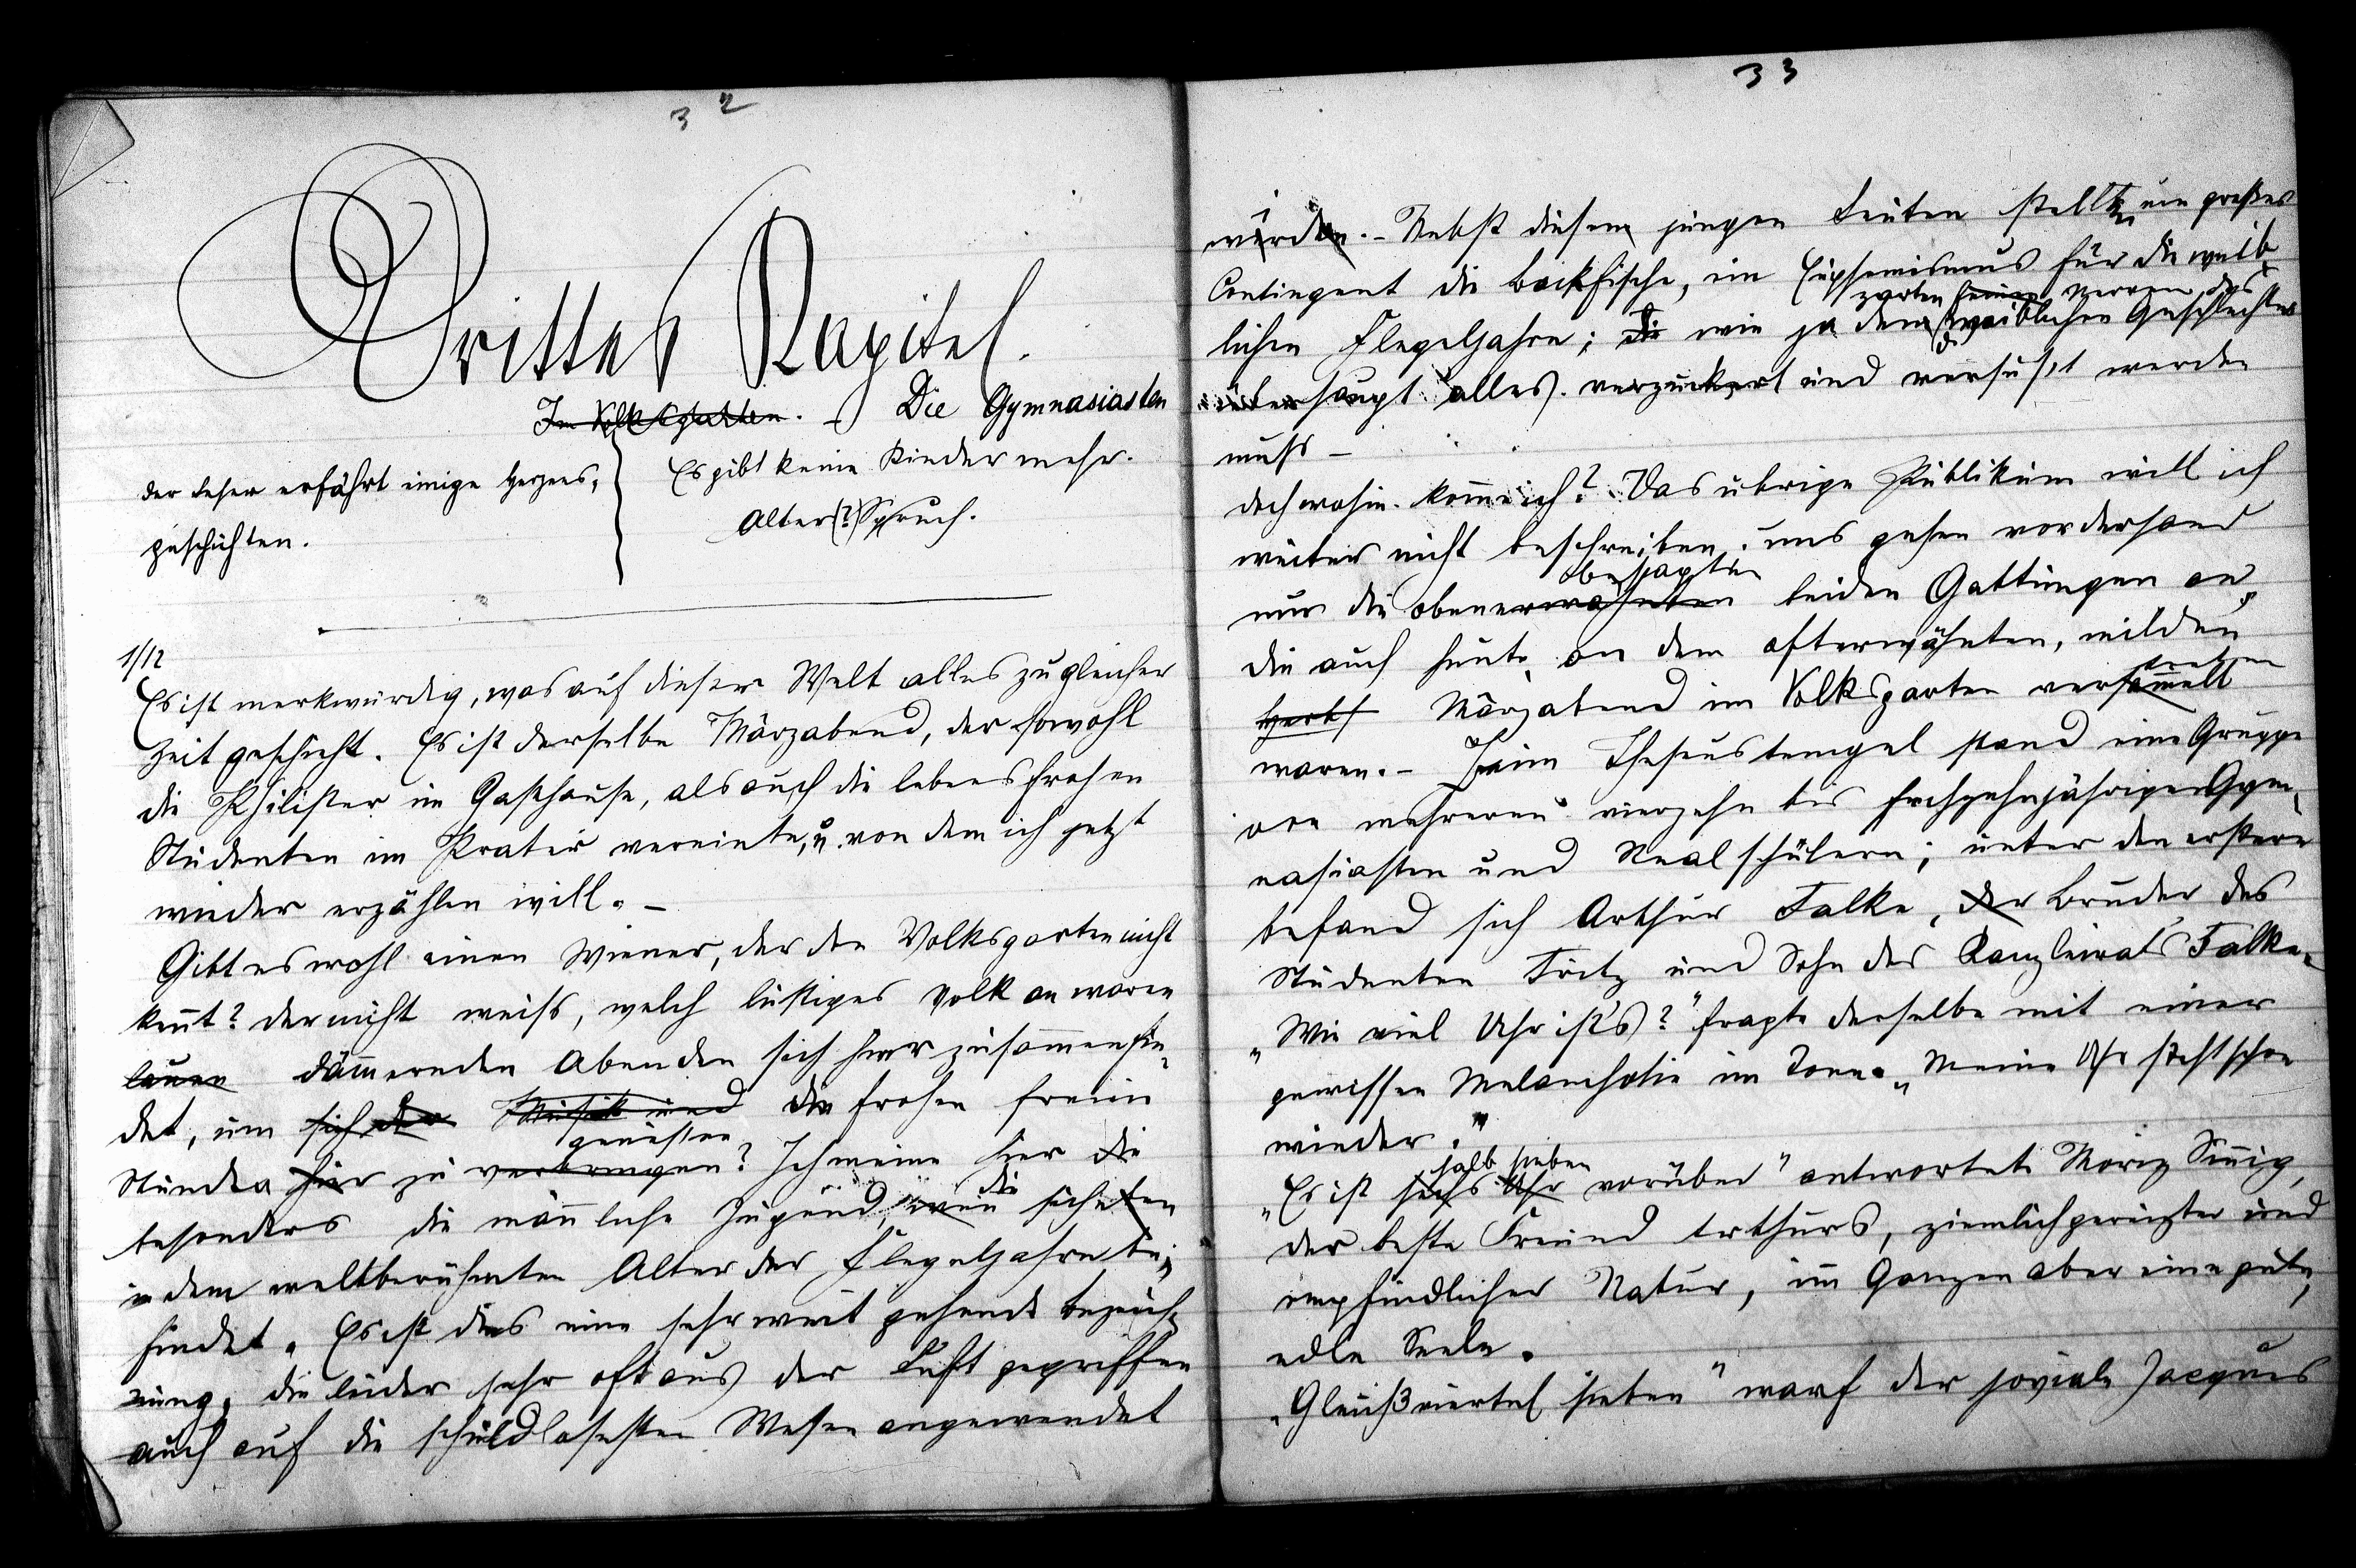 32
Drittes Kapitel.
Im Volksgarten. – Die Gymnasiasten
Der Leser erfährt einige Herzens,
geschichten.
Es gibt keine Kinder mehr.
Alter (?) Spruch.
1/12
Es ist merkwürdig, was auf dieser Welt alles zu gleicher
Zeit geschieht. Es ist derselbe Märzabend, der sowohl
die Philister im Gasthause, als auch die lebensfrohen
Studenten im Prater vereinte, u. von dem ich jetzt
wieder erzählen will. –
Gibt es wohl einen Wiener, der den Volksgarten nicht
kennt? der nicht weiss, welch lustiges Volk an warmen
lauen dämmernden Abenden sich hier zusammenfin-
det, um sich der Musik und die frohen freien
genießen
Stunden hier zu verbringen? Ich meine hier die
die
besonders die männliche Jugend, wenn sie sich eben
in dem weltberühmten Alter der Flegeljahre be-
findet. Es ist dies eine sehr weit gehende Bezeich-
nung, die leider sehr oft aus der Luft gegriffen
auch auf die schuldlosesten Wesen angewendet
33
wird. – Nebst diesen jungen Leuten stellten ein großes
Contingent die Backfische, ein Euphemismus für die weib-
zarten feinen Nerven des
lichen Flegeljahre; wie ja dem weiblichen Geschlechtes
überhaupt alles verzuckert und versüßt werden
muss –
doch wohin komme ich? Das übrige Publikum will ich
weiter nicht beschreiben; uns gehen vorderhand
besagten
nur die obenerwähnten beiden Gattungen an,
die auch heute an dem ofterwähnten, milden
treten
Herbst Märzabend im Volksgarten versammelt
waren. – Beim Theseustempel stand eine Gruppe
von mehreren vierzehn bis sechzehnjährigen Gym-
nasiasten und Realschülern; unter den erstern
befand sich Arthur Falke, der Bruder des
Studenten Fritz und Sohn des Kanzleirats Falke.
„Wie viel Uhr ist's?" fragte derselbe mit einer
gewissen Melancholie im Tone. „Meine Uhr steht schon
wieder."
halb sieben
„Es ist sechs Uhr vorüber" antwortete Moriz Sinnig,
der beste Freund Arthurs, ziemlich gereizter und
empfindlicher Natur, im Ganzen aber eine gute,
edle Seele.
„Gleich ¾ viertel sieben" warf der joviale Jacques